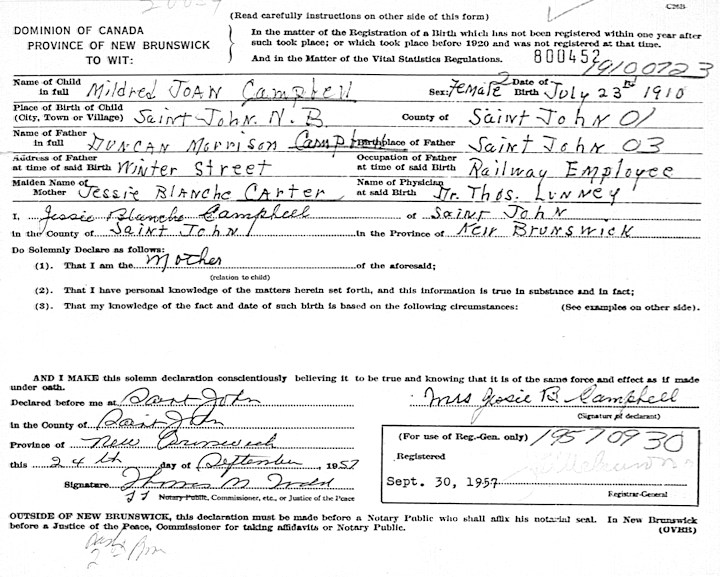 (Read carefully instructions on other side of this form)
C262B
DOMINION OF CANADA
PROVINCE OF NEW BRUNSWICK
TO WIT:
In the matter of the Registration of a Birth which has not been registered within one year after
such took place; or which took place before 1920 and was not registered at that time.
And in the Matter of the Vital Statistics Regulations.
800452
19100723
Name of Child in full Mildred JOAN Campbell Sex: Female 2 Date of Birth July 23rd 1910
Place of Birth of Child (City, Town or Village) Saint John. N. B County of Saint John 01
Name of Father in full DUNCAN Morrison Campbell Birthplace of Father Saint John 03
Address of Father at time of said Birth Winter Street Occupation of Father at time of said Birth Railway Employee
Maiden Name of Mother Jessie BLANCHE CARTER Name of Physician at said Birth Dr. Thos. LUNNEY
I, Jessie Blanche Campbell of Saint John
in the County of Saint John in the Province of New Brunswick
Do Solemnly Declare as follows:
(1). That I am the Mother of the aforesaid;
(relation to child)
(2). That I have personal knowledge of the matters herein set forth, and this information is true in substance and in fact;
(3). That my knowledge of the fact and date of such birth is based on the following circumstances: (See examples on other side).
AND I MAKE this solemn declaration conscientiously believing it to be true and knowing that it is of the same force and effect as if made
under oath.
Declared before me at Saint John
Mrs Jessie B. Campbell
(Signature of declarant)
in the County of Saint John
Province of New Brunswick
this 24th day of September, 1957
Signature Thomas M
Notary Public, Commissioner, etc., or Justice of the Peace
(For use of Reg.-Gen. only) 19570930
Registered
Sept. 30, 1957
Registrar-General
OUTSIDE OF NEW BRUNSWICK, this declaration must be made before a Notary Public who shall affix his notarial seal. In New Brunswick
before a Justice of the Peace, Commissioner for taking affidavits or Notary Public.
(OVER)